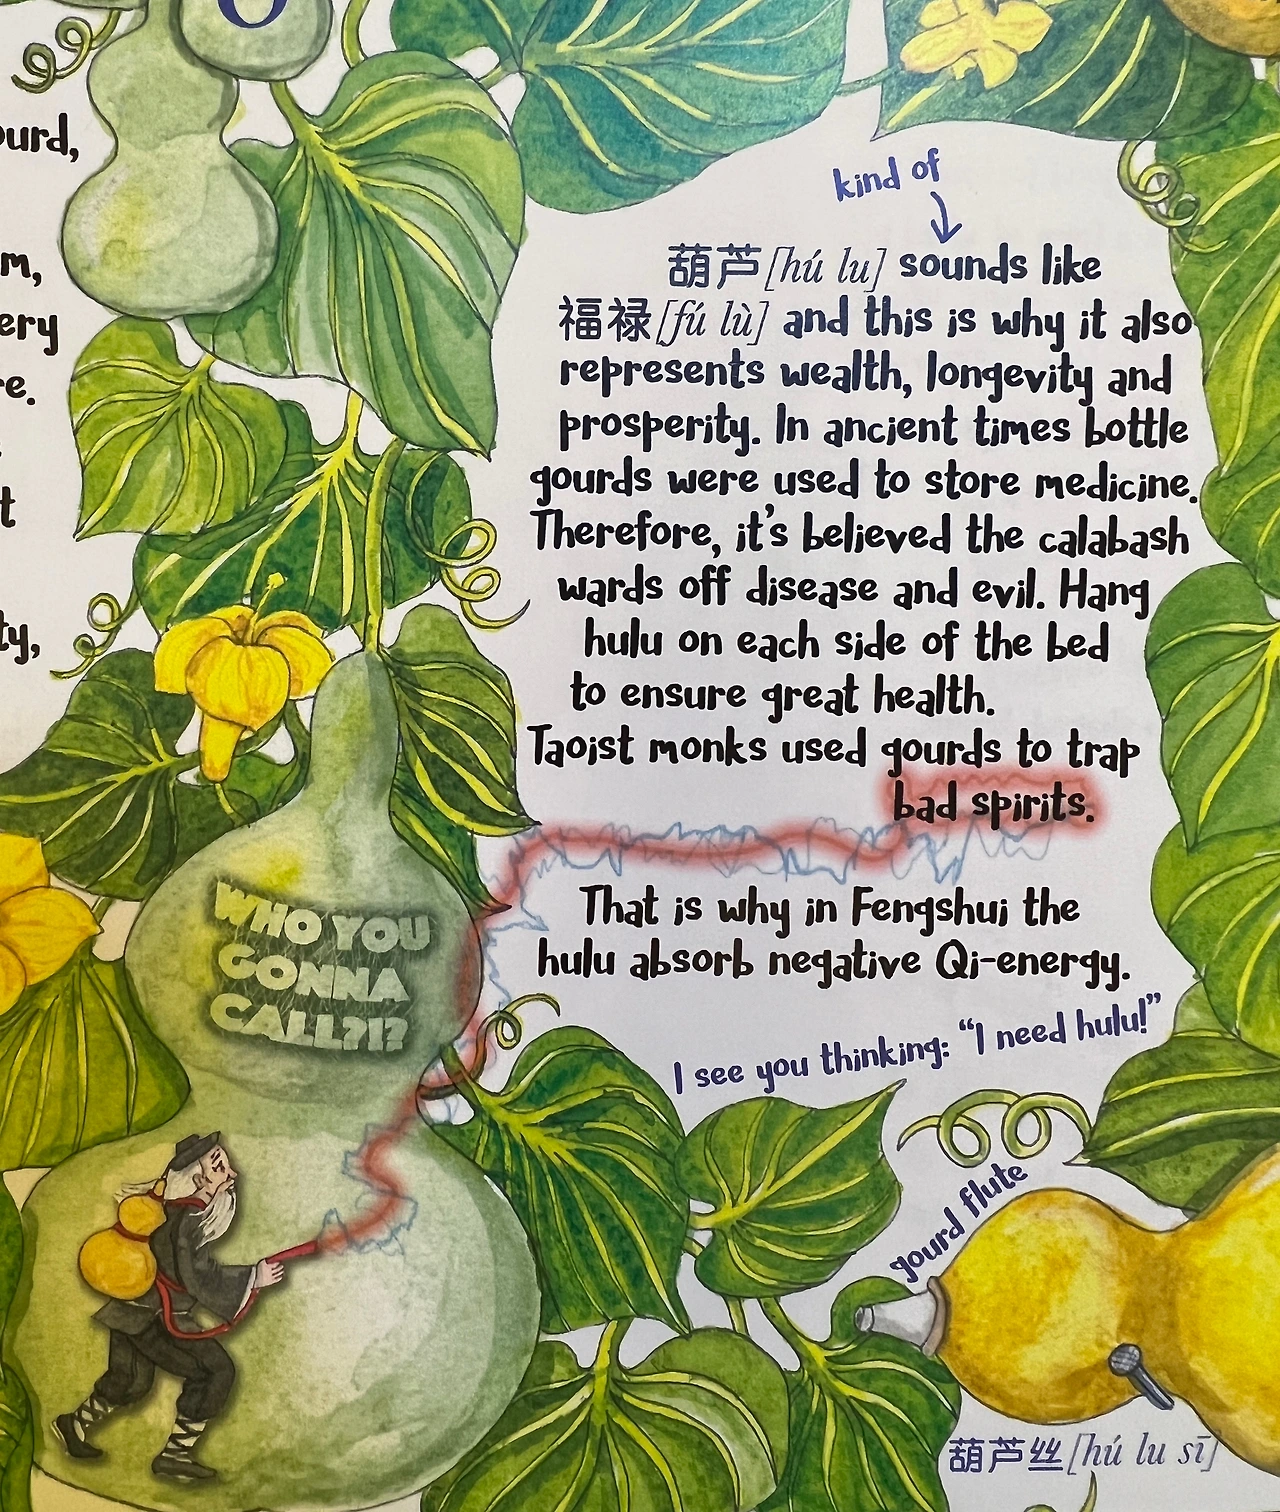 ourd,
m,
ery
re.
t
ty,
kind of
葫芦[hú lu] sounds like
福禄[fú lù] and this is why it also
represents wealth, longevity and
prosperity. In ancient times bottle
gourds were used to store medicine.
Therefore, it's believed the calabash
wards off disease and evil. Hang
hulu on each side of the bed
to ensure great health.
Taoist monks used gourds to trap
bad spirits.
That is why in Fengshui the
hulu absorb negative Qi-energy.
I see you thinking: “I need hulu!”
WHO YOU
GONNA
CALL?!?
gourd flute
葫芦丝[hú lu sī]